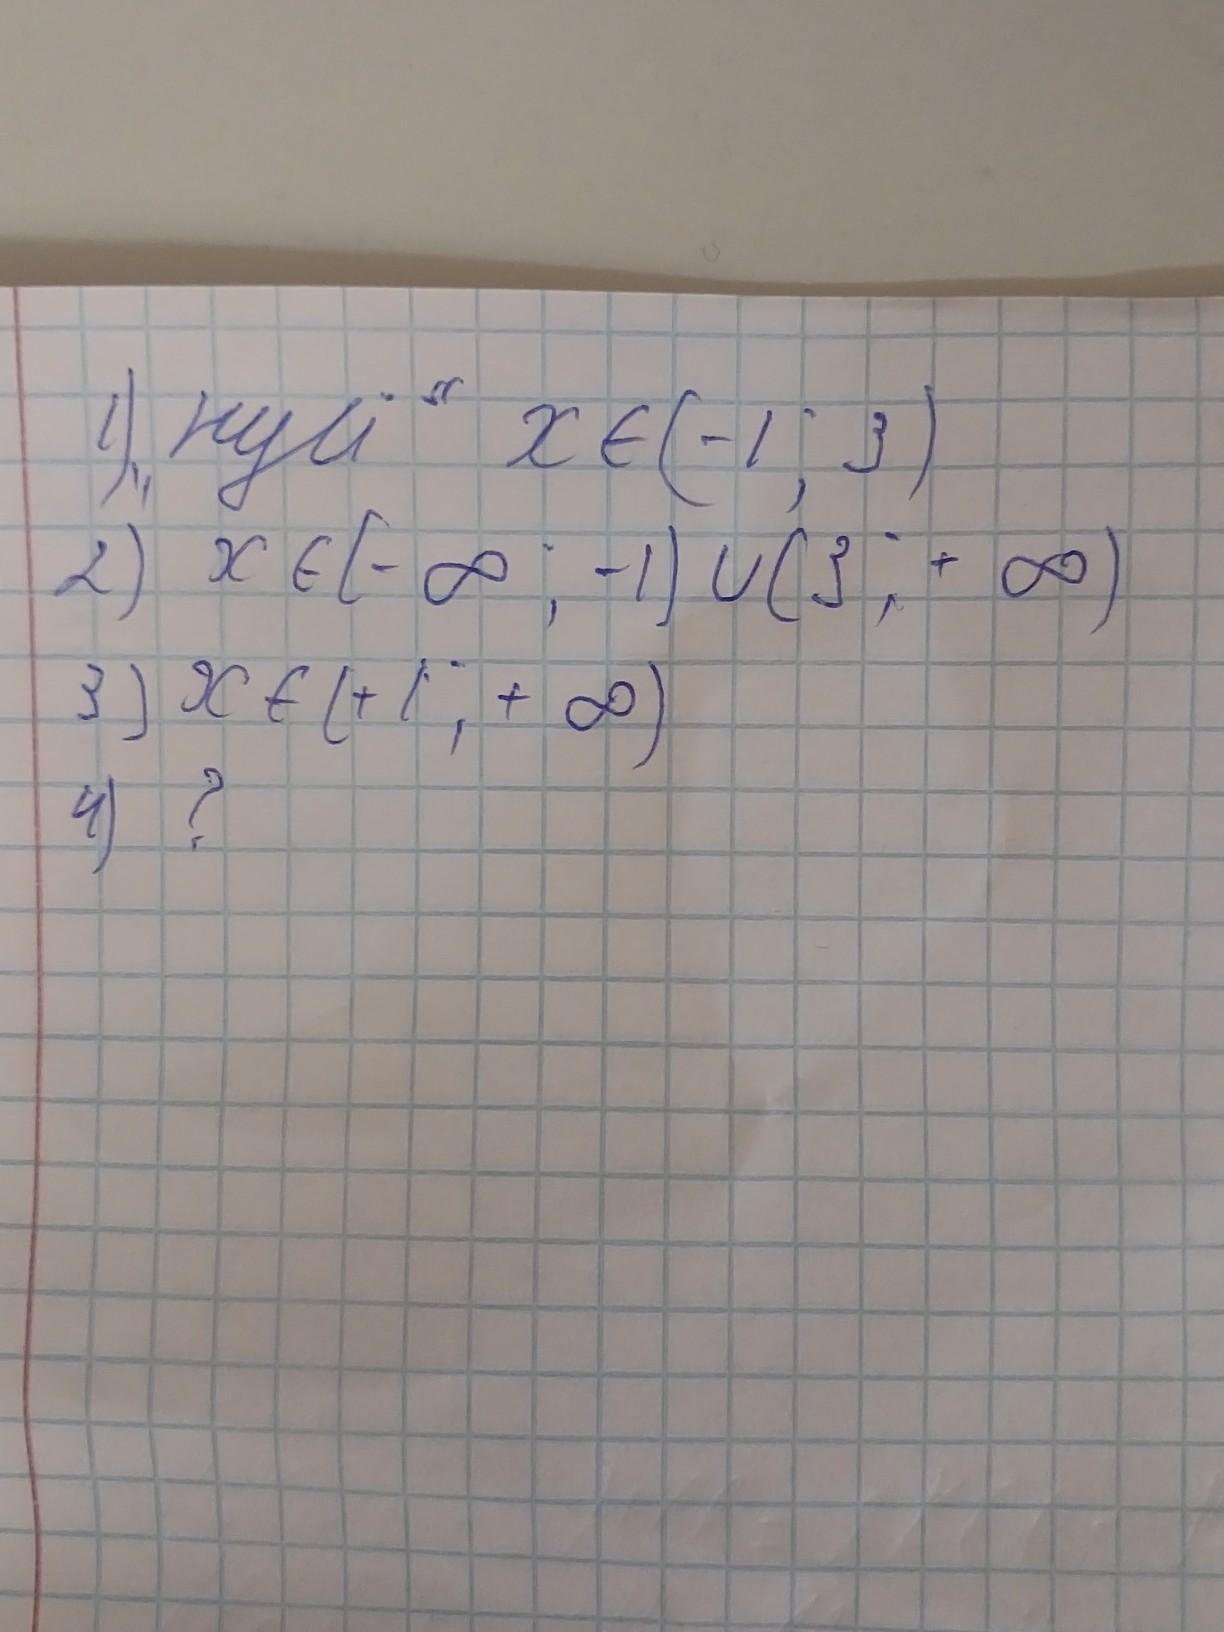 1) „нулі“ x ∈ (-1; 3)
2) x ∈ (-∞; -1) ∪ (3; +∞)
3) x ∈ (+1; +∞)
4) ?